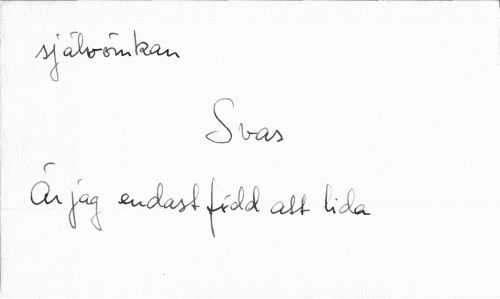 självömkan
Svas
Är jag endast född att lida